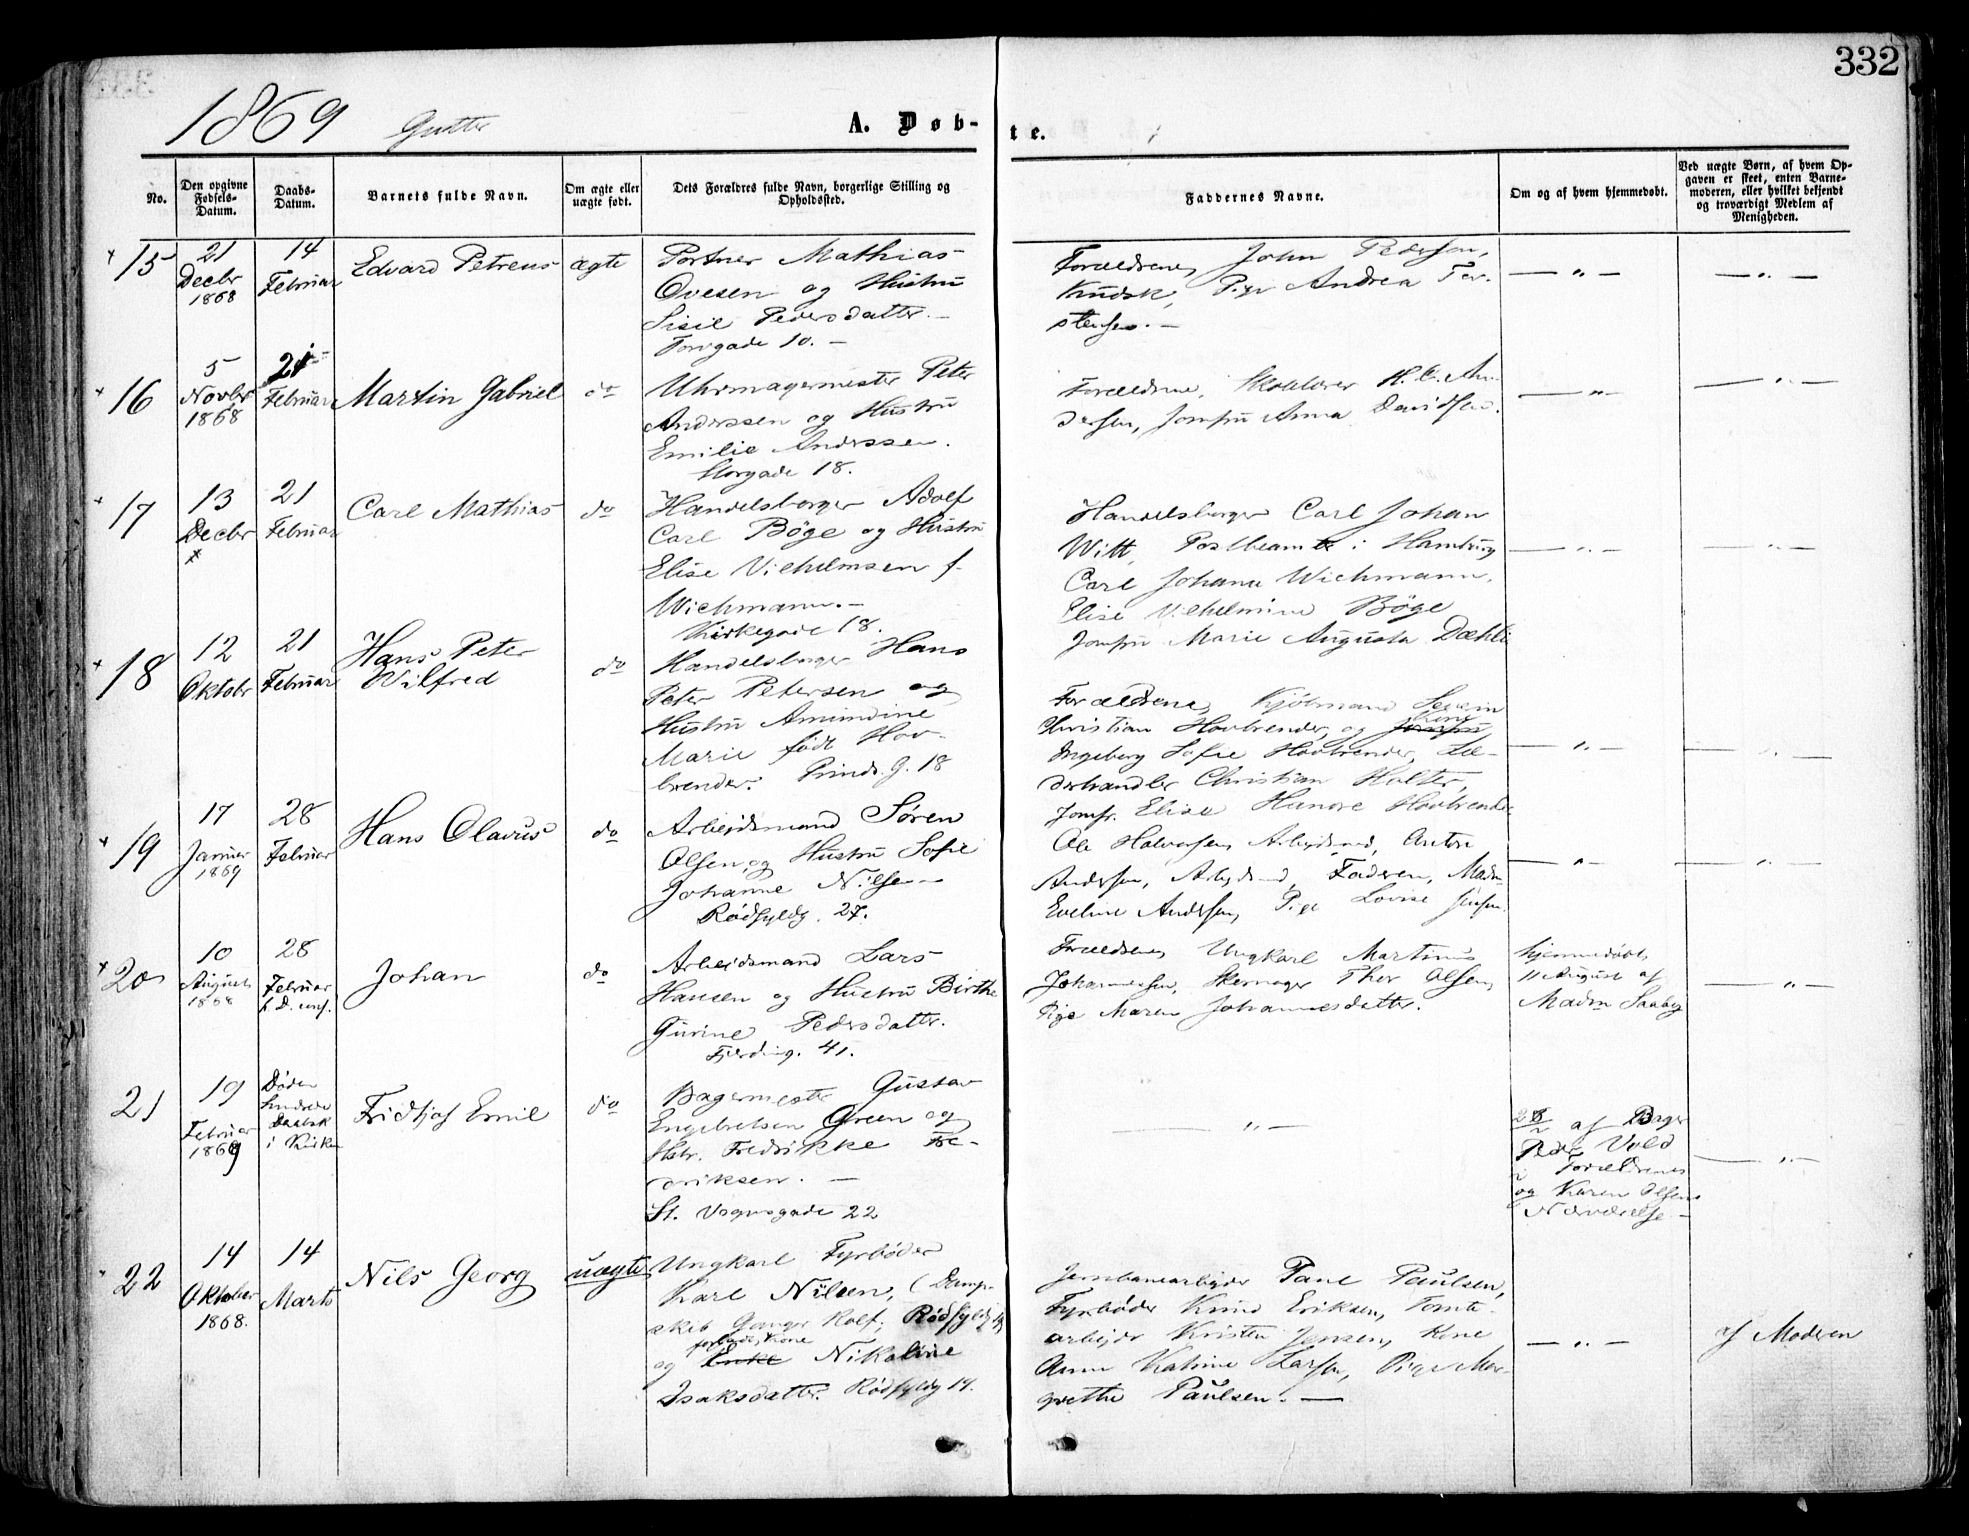 332
1869 Gutter A. Døb-te.
No.
Den opgivne Fødsels-Datum.
Daabs-Datum.
Barnets fulde Navn.
Om ægte eller uægte født.
Dets Forældres fulde Navn, borgerlige Stilling og Opholdssted.
Faddernes Navne.
Om og af hvem hjemmedøbt.
Ved uægte Børn, af hvem Opgaven er skeet, enten Barnemoderen, eller hvilket bekjendt og troværdigt Medlem af Menigheden.
15
21 Decbr 1868
14 Februar
Edvard Petreus
ægte
Portner Mathias
Ovesen og Hustru
Sisil Pedersdatter. —
Torvgade 10. —
Forældrene, John Pedersen,
Knudsk, Pige Andrea Tor-
stensen. —
— " —
— " —
16
5 Novbr 1868
21 Februar
Martin Gabriel
do
Uhrmagermester Peter
Anderssen og Hustru
Emilie Anderssen.
Storgade 18.
Forældrene, H. C. An-
dersen, Jomfru Anna Davidsen.
— " —
— " —
17
13 Decbr
21 Februar
Carl Mathias
do
Handelsborger Adolf
Carl Böge og Hustru
Elise Vilhelmsen f.
Wichmann. —
Kirkegade 18.
Handelsborger Carl Johan
Witt, Postbeamte i Hamburg
Carl Johann Wichmann,
Elise Vilhelmine Böge
Jomfru Marie Augusta Dæhli
— " —
— " —
18
12 Oktobr
21 Februar
Hans Peter
Wilfred
do
Handelsborger Hans
Peter Petersen og
Hustru Amundine
Marie født Hov-
brender. Prinds. G. 18
Forældrene, Kjøbmand Severin
Christian Hovbrender, og Jomfru Kone
Ingeborg Sofie Hovbrender, Læ-
derhandler Christian Holter,
Jomfr. Elise Hanore Hovbrender
— " —
— " —
19
17 Januer 1869
28 Februar
Hans Olavus
do
Arbeidsmand Søren
Olsen, og Hustru Sofie
Johanne Nilsen
Rødfyldg. 27.
Ole Halvorsen, Arbeidsmd, Anton
Andersen, Arbeidsmd, Faderen, Madm
Eveline Andersen, Pige Lovise Jensen.
— " —
— " —
20
10 August 1868
28 Februar
Johan
do
Arbeidsmand Lars
Hansen og Hustru Birthe
Gurine Pedersdatter.
Fjerding. 41.
Forældrene, Ungkarl Martinus
Johannessen, Skomager Thor Olsen,
Pige Maren Johannesdatter.
hjemmedøbt
11 August af
Madm Saaberg
— " —
21
19 Februar 1869
Døden
hindrede
Daabsk
i Kirken
Fridtjof Emil
do
Bagermester Gustav
Engebretsen Green og
Hstr. Fredrikke Fre-
deriksen. —
St. Vognsgade 22
— " —
28/2 af Bager
Peder Vold
i Forældrenes
og Karen Olsens
Nærværelse —
— " —
22
14 Oktober 1868.
14 Marts
Nils Georg
uægte
Ungkarl Fyrbøder
Karl Nilsen, (Damp-
skib Ganger Rolf; Rødfyldg 19
og Enke Nikoline
Isaksdatter. Rødfyldg 19.
Jernbanearbeider Paul Paulsen,
Fyrbøder Knud Eriksen, Tomte-
arbejder Kristen Jensen, Kone
Anne Katrine Larsen, Pige Mar-
grethe Paulsen. —
— " —
af Moderen